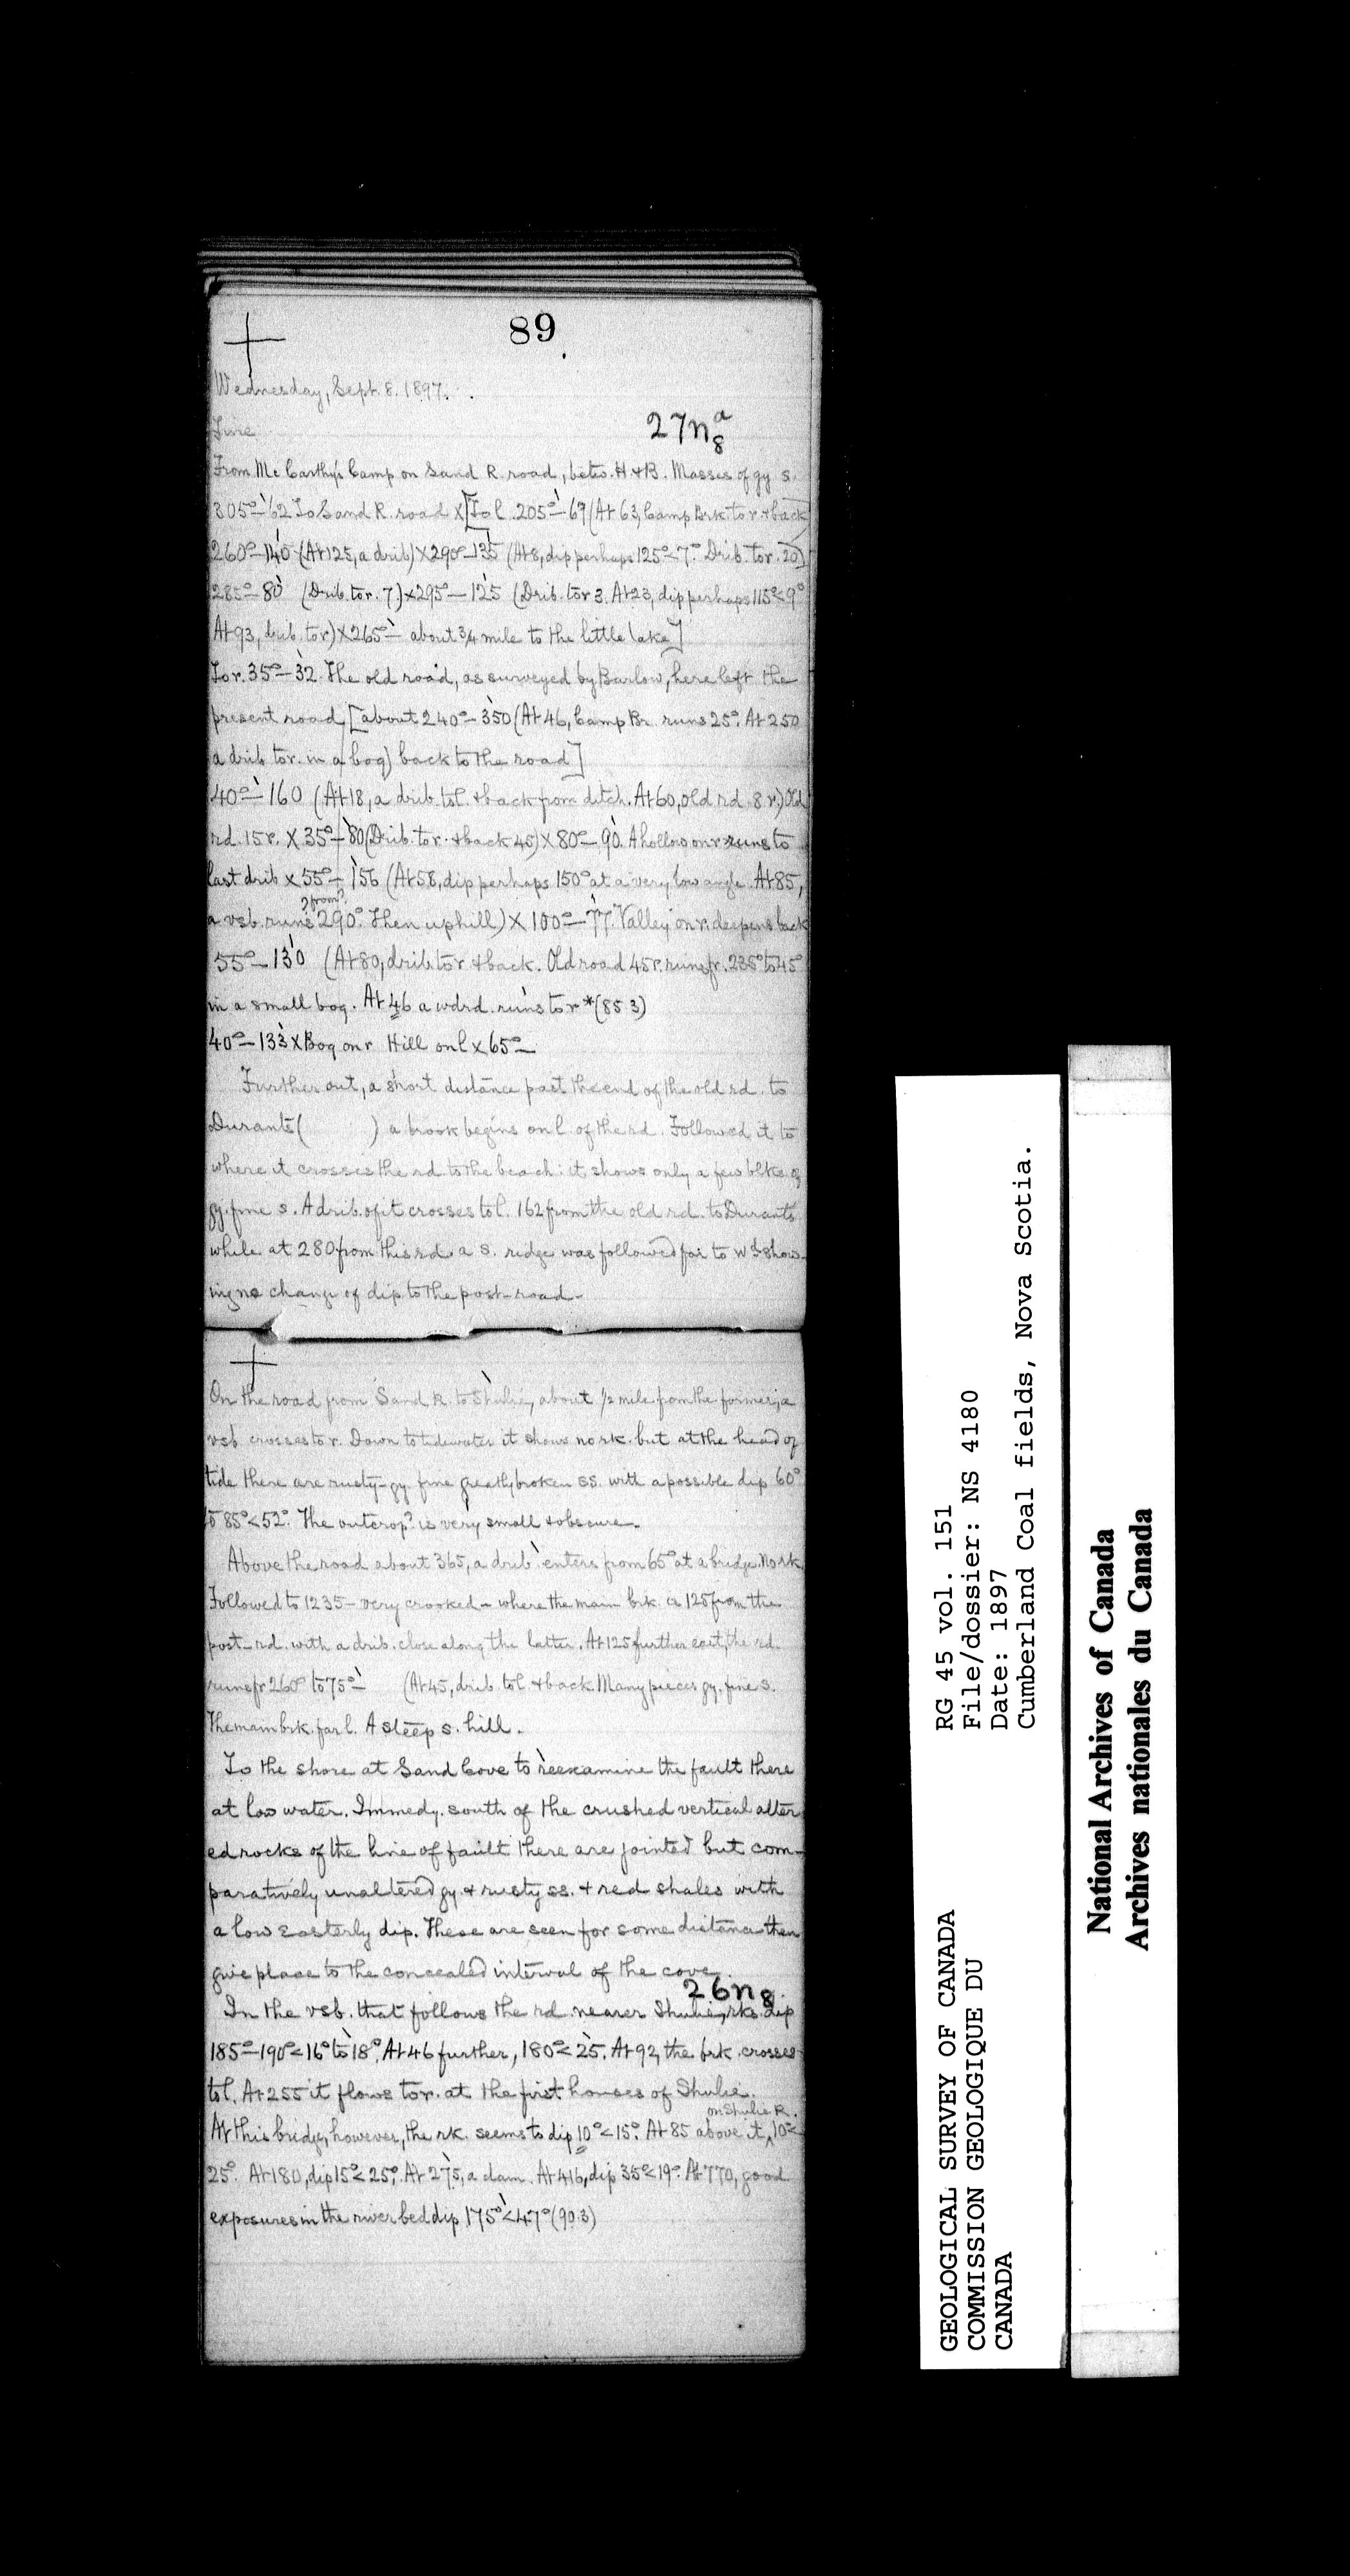 89
Wednesday, Sept. 8. 1897.
Fine
27n8a
From McCarthy's Camp on Sand R. road, betw. H & B. Masses of gy s.
305°–62 To Sand R. road x [To l. 205°–67 (At 63, Camp Brk to r & back)
260°–140 (At 125, a drib) x 290°–135 (At 8, dip perhaps 125°<7°. Drib. to r. 20)
285°–80 (Drib. to r. 7.) x 295°–125 (Drib. to r 3. At 23, dip perhaps 115°<9°
At 93, drib. to r) x 265°– about 3/4 mile to the little lake]
To r. 35°–32. The old road, as surveyed by Barlow, here left the
present road [about 240°–350 (At 46, Camp Br. runs 25°. At 250
a drib to r. in a bog) back to the road]
40°–160 (At 18, a drib. to l. & back from ditch. At 60, old rd. 8 r.) Old
rd. 15 r. x 35°–80 (Drib. to r. & back 45) x 80°–90. A hollow on r runs to
last drib x 55°–156 (At 58, dip perhaps 150° at a very low angle. At 85,
a vsb. runs ?from? 290°. Then uphill) x 100°–77. Valley on r. deepens back
55°–130 (At 80, drib. to r & back. Old road 45 r. runs fr. 235° to 45°
in a small bog. At 46 a wdrd. runs to r *(85.3)
40°–133 x Bog on r Hill on l x 65°–
Further out, a short distance past the end of the old rd. to
Durants ( ) a brook begins on l. of the rd. Followed it to
where it crosses the rd. to the beach: it shows only a few blks. of
gy. fine s. A drib. of it crosses to l. 162 from the old rd. to Durants
while at 280 from this rd. a s. ridge was followed far to wd show-
ing no change of dip to the post-road–
On the road from Sand R. to Shulie, about 1/2 mile from the former, a
vsb. crosses to r. Down to tidewater it shows no rk. but at the head of
tide there are rusty-gy. fine greatly broken ss. with a possible dip 60°
to 85°<52°. The outcrop? is very small & obscure.
Above the road about 365, a drib enters from 65° at a bridge. No rk.
Followed to 1235– very crooked– where the main brk. is 125 from the
post-rd. with a drib. close along the latter. At 125 further east, the rd.
runs fr 260° to 75°– (At 45, drib. to l. & back. Many pieces gy. fine s.
The main brk. far l. A steep s. hill.
To the shore at Sand Cove to reexamine the fault there
at low water. Immedy. south of the crushed vertical alter-
ed rocks of the line of fault there are jointed but com-
paratively unaltered gy. & rusty ss. & red shales with
a low easterly dip. These are seen for some distance then
give place to the concealed interval of the cove.
26n8.
In the vsb. that follows the rd. nearer Shulie, rks. dip
185°–190°<16° to 18°. At 46 further, 180°<25. At 92, the brk. crosses
to l. At 255 it flows to r. at the first houses of Shulie.
At this bridge, however, the rk. seems to dip 10°<15°. At 85 above it, on Shulie R. 10°<
25°. At 180, dip 15°<25°. At 275, a dam. At 416, dip 35°<19°. At 770, good
exposures in the river bed dip 175°<47° (90.3)
GEOLOGICAL SURVEY OF CANADA
COMMISSION GEOLOGIQUE DU
CANADA
RG 45 vol. 151
File/dossier: NS 4180
Date: 1897
Cumberland Coal fields, Nova Scotia.
National Archives of Canada
Archives nationales du Canada